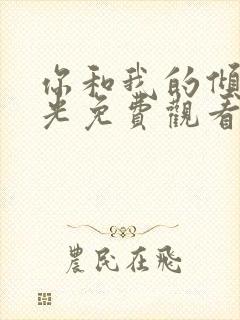 你和我的傾
光免費觀看
農民在飛